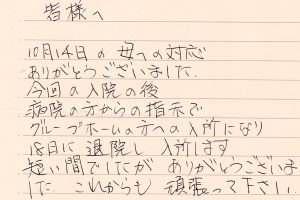 皆様へ
10月14日の母への対応
ありがとうございました.
今回の入院の後
病院の方からの指示で
グループホームの方への入所になり
18日に退院し入所します
短い間でしたが ありがとうございま
した これからも 頑張って下さい